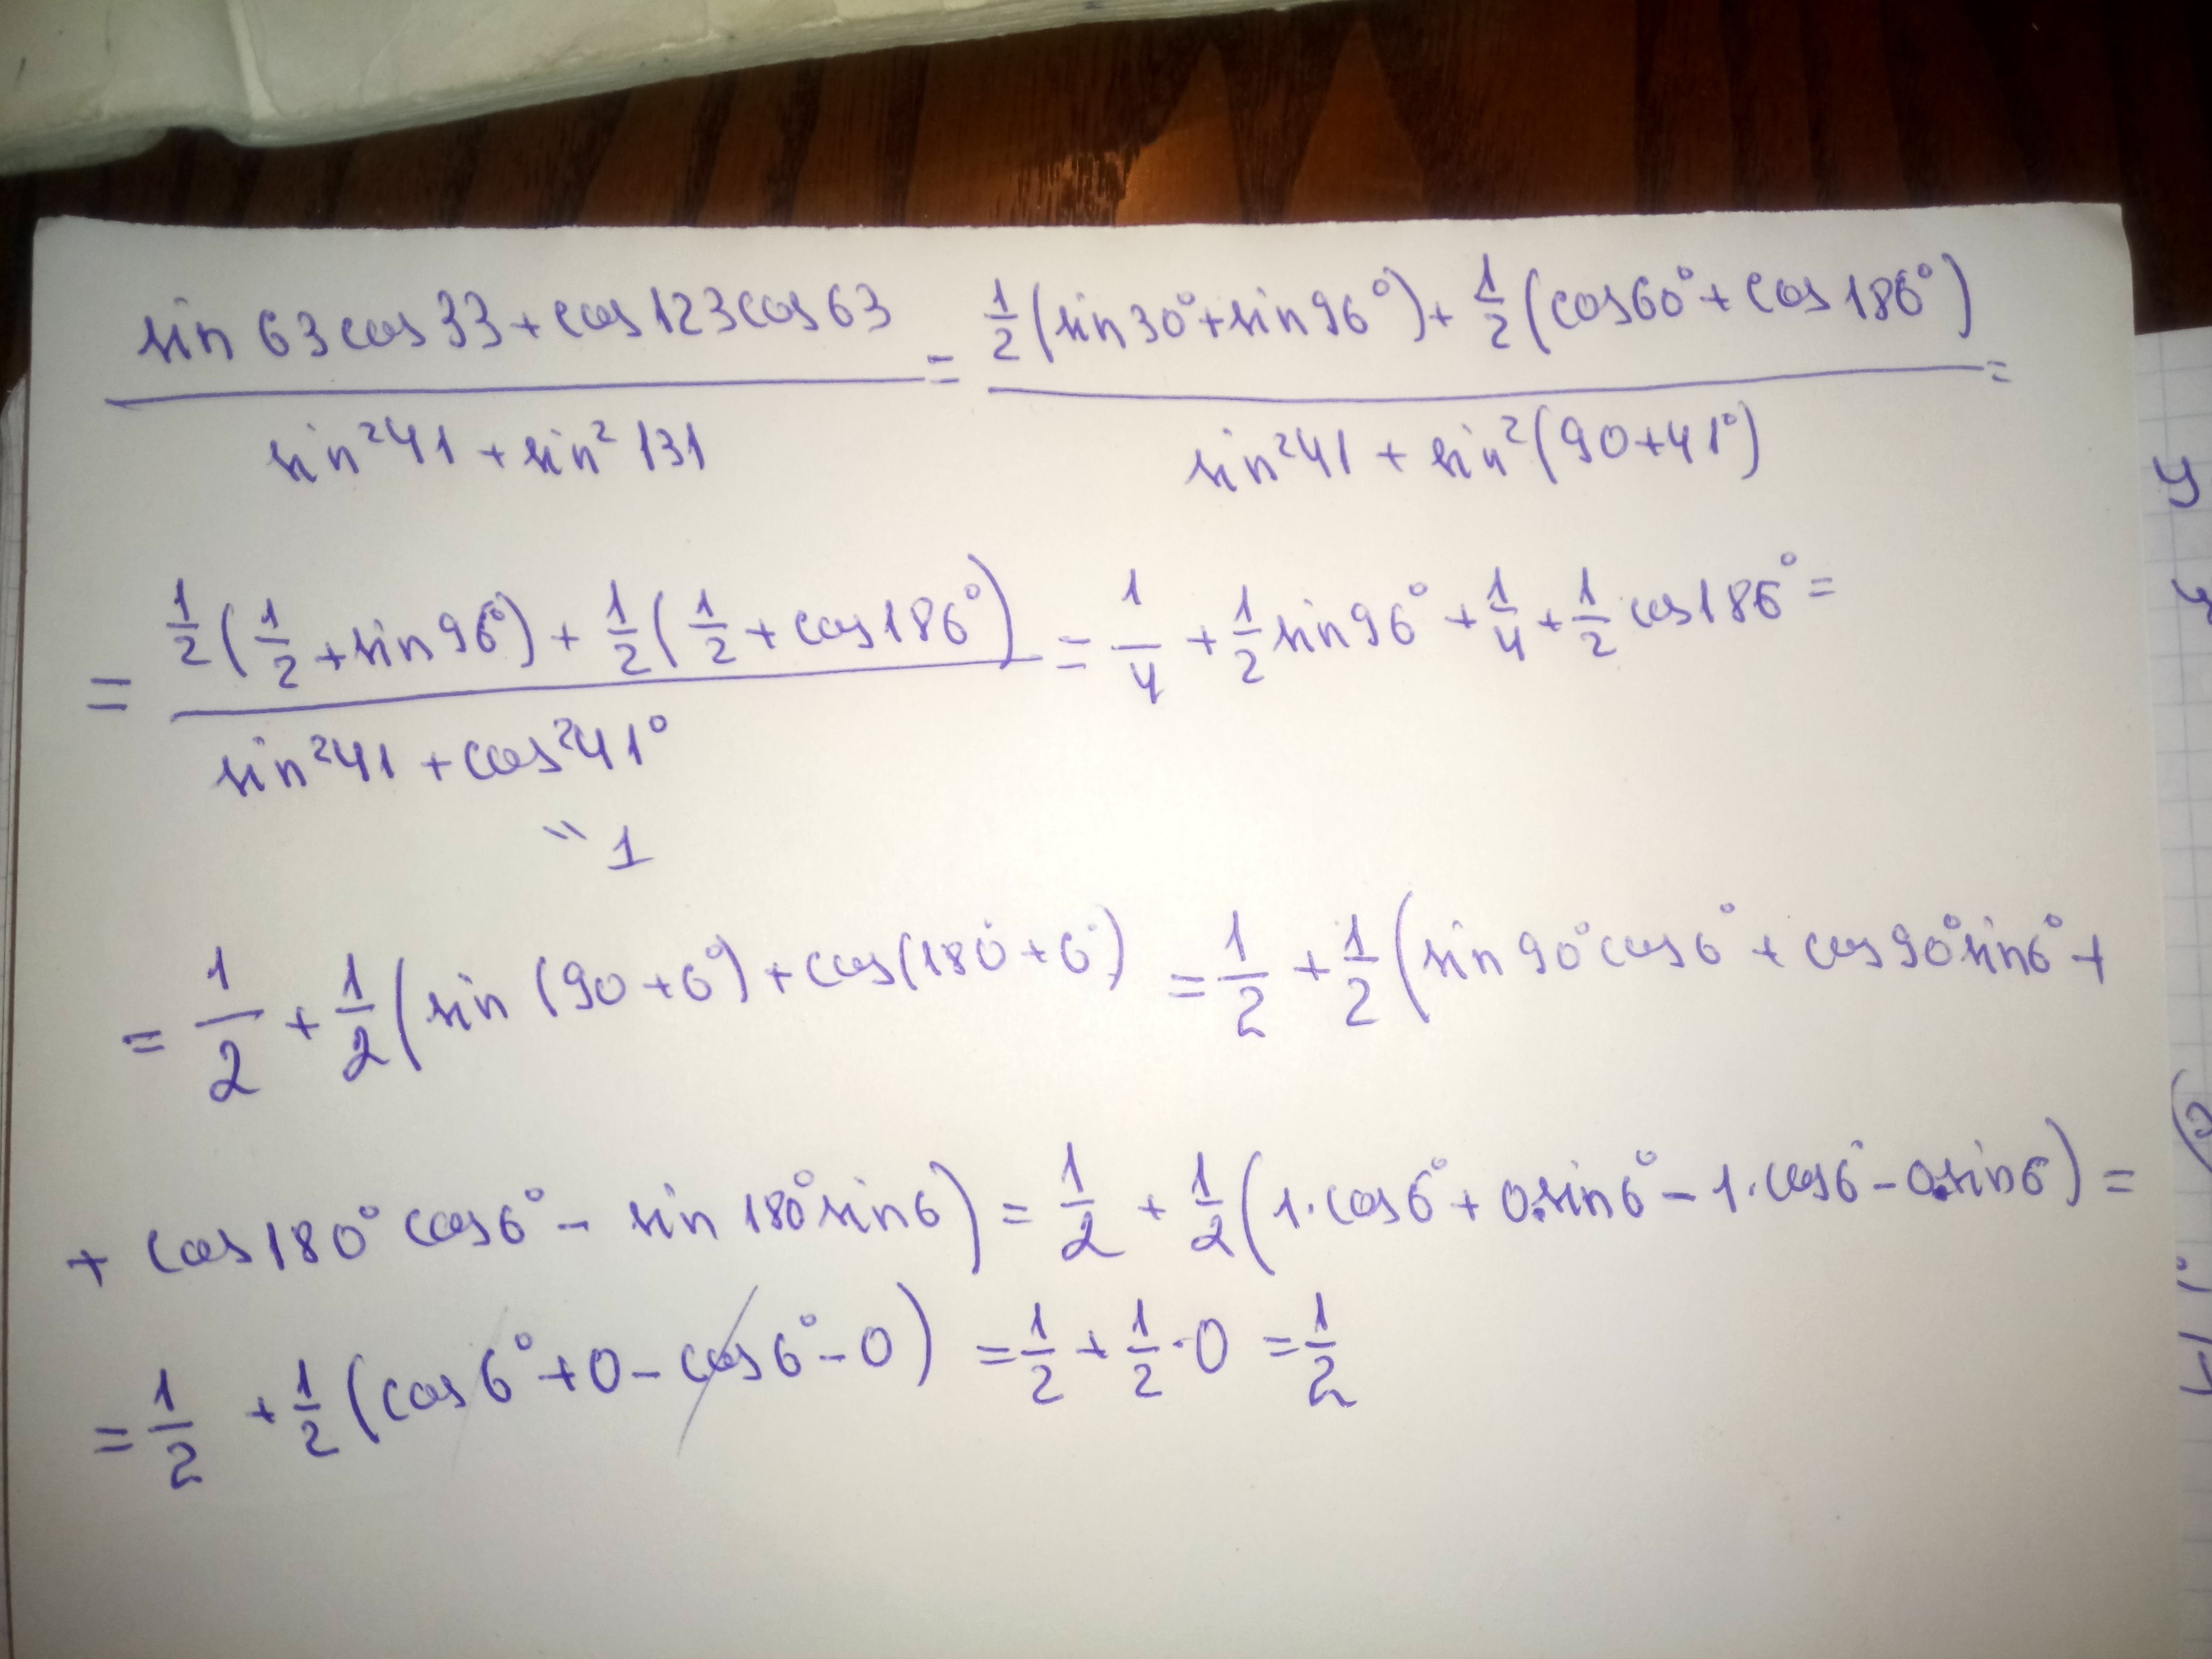 (sin 63 cos 33 + cos 123 cos 63)/(sin² 41 + sin² 131) = (1/2 (sin 30° + sin 96°) + 1/2 (cos 60° + cos 186°))/(sin² 41 + sin² (90 + 41°)) =
= (1/2 (1/2 + sin 96°) + 1/2 (1/2 + cos 186°))/(sin² 41 + cos² 41°) = 1/4 + 1/2 sin 96° + 1/4 + 1/2 cos 186° =
" 1
= 1/2 + 1/2 (sin (90 + 6°) + cos (180° + 6°) = 1/2 + 1/2 (sin 90° cos 6° + cos 90° sin 6° +
+ cos 180° cos 6° - sin 180° sin 6) = 1/2 + 1/2 (1·cos 6° + 0·sin 6° - 1·cos 6° - 0·sin 6) =
= 1/2 + 1/2 (cos 6° + 0 - cos 6° - 0) = 1/2 + 1/2 · 0 = 1/2